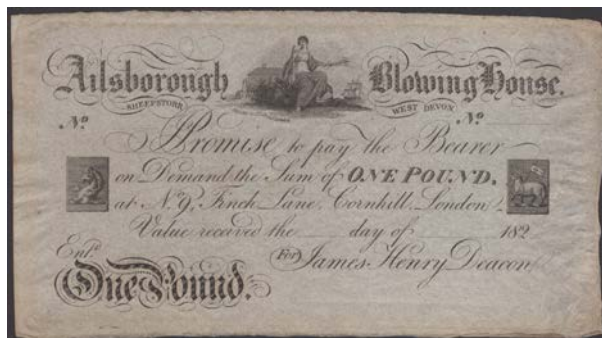 Ailsborough Blowing House.
SHEEPSTORR WEST DEVON
No No
I Promise to pay the Bearer
on Demand the Sum of ONE POUND.
at No 9, Finch Lane, Cornhill, London.
Value received the day of 182
For James Henry Deacon
Entd
One Pound.